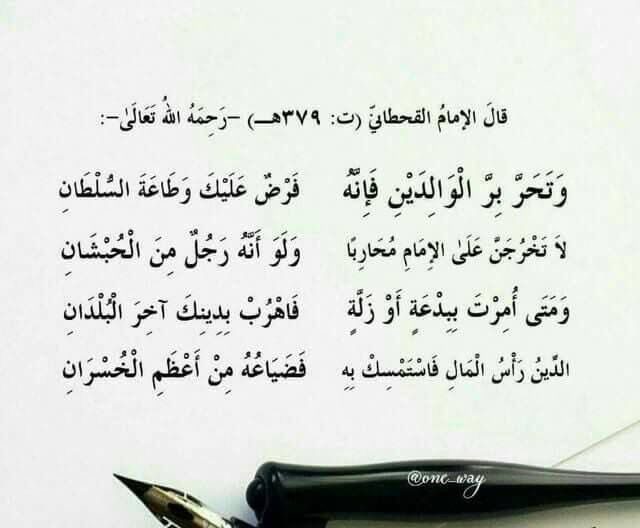 قالَ الإمامُ القحطانيّ (ت: ٣٧٩هـ) -رَحِمَهُ اللهُ تَعَالَىٰ-:
وَتَحَرَّ بِرَّ الْوَالِدَيْنِ فَإِنَّهُ فَرْضٌ عَلَيْكَ وَطَاعَةَ السُّلْطَانِ
لاَ تَخْرُجَنَّ عَلَىٰ الإِمَامِ مُحَارِبًا وَلَوَ أَنَّهُ رَجُلٌ مِنَ الْحُبْشَانِ
وَمَتَى أُمِرْتَ بِبِدْعَةٍ أَوْ زَلَّةٍ فَاهْرُبْ بِدِينِكَ آخِرَ الْبُلْدَانِ
الدِّينُ رَأْسُ الْمَالِ فَاسْتَمْسِكْ بِهِ فَضَيَاعُهُ مِنْ أَعْظَمِ الْخُسْرَانِ
@one_way